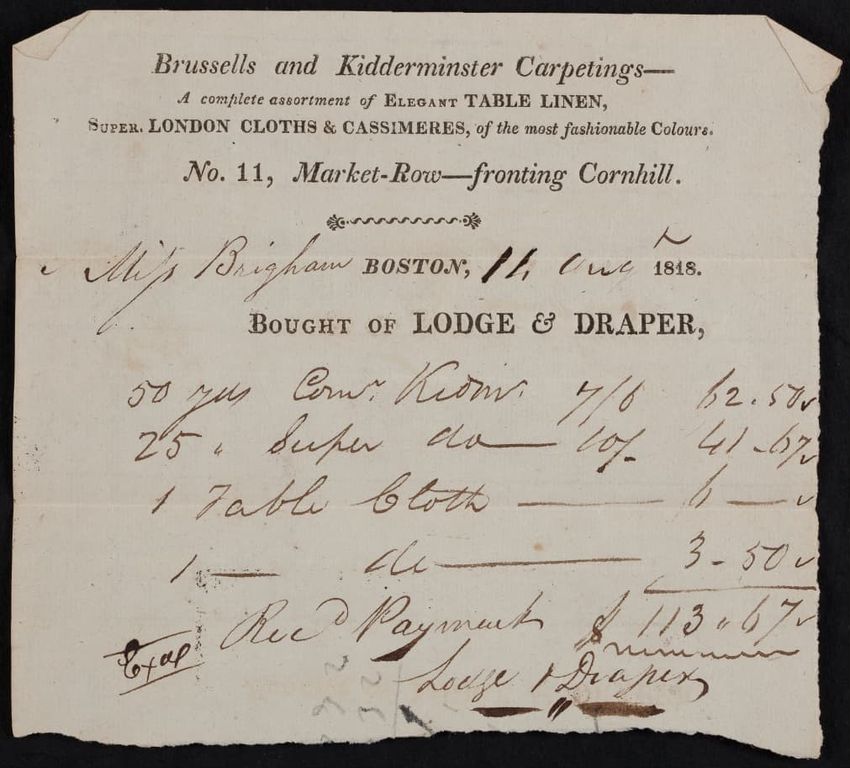 Brussells and Kidderminster Carpetings—
A complete assortment of ELEGANT TABLE LINEN,
SUPER. LONDON CLOTHS & CASSIMERES, of the most fashionable Colours.
No. 11, Market-Row—fronting Cornhill.
Miss Brigham BOSTON, 14 Augt 1818.
BOUGHT OF LODGE & DRAPER,
50 yds Comn. Kidmr. 7/6 62.50
25 " Super do — 10/- 41.67
1 Table Cloth — 6 —
1 — do — 3-50
Recd Payment $ 113.67
Lodge & Draper
Exad